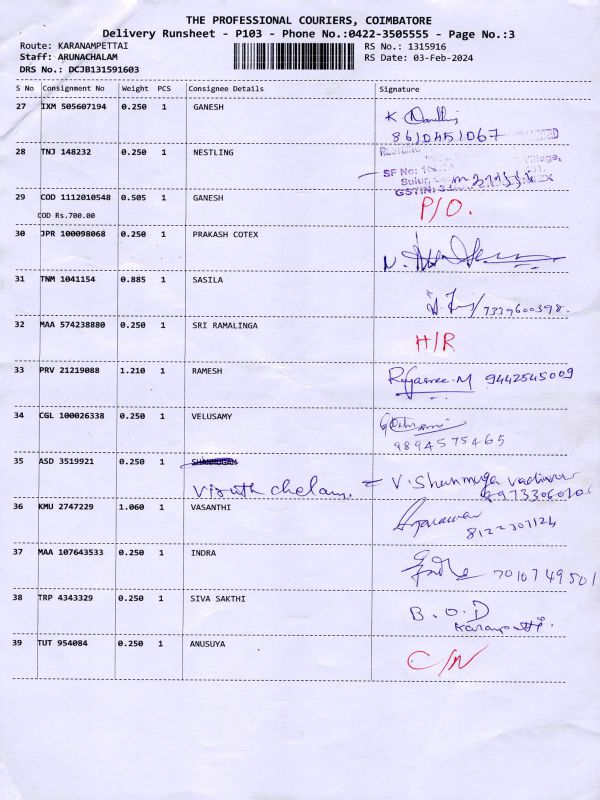 THE PROFESSIONAL COURIERS, COIMBATORE
Delivery Runsheet - P103 - Phone No.:0422-3505555 - Page No.:3
Route: KARANAMPETTAI RS No.: 1315916
Staff: ARUNACHALAM RS Date: 03-Feb-2024
DRS No.: DCJB131591603
S No Consignment No Weight PCS Consignee Details Signature
27 IXM 505607194 0.250 1 GANESH
K
8610451067
28 TNJ 148232 0.250 1 NESTLING
Village,
SF No:
Sulur,
GSTIN:
29 COD 1112010548 0.505 1 GANESH
COD Rs.700.00
P/O.
30 JPR 100098068 0.250 1 PRAKASH COTEX
31 TNM 1041154 0.885 1 SASILA
7339600398.
32 MAA 574238880 0.250 1 SRI RAMALINGA
H/R
33 PRV 21219088 1.210 1 RAMESH
Rajasree.M 9442545009
34 CGL 100026338 0.250 1 VELUSAMY
9894575465
35 ASD 3519921 0.250 1 SHANMUGAM
= V. Shanmuga
36 KMU 2747229 1.060 1 VASANTHI
8122307124
37 MAA 107643533 0.250 1 INDRA
7010749501
38 TRP 4343329 0.250 1 SIVA SAKTHI
B.O.D
39 TUT 954084 0.250 1 ANUSUYA
C/N